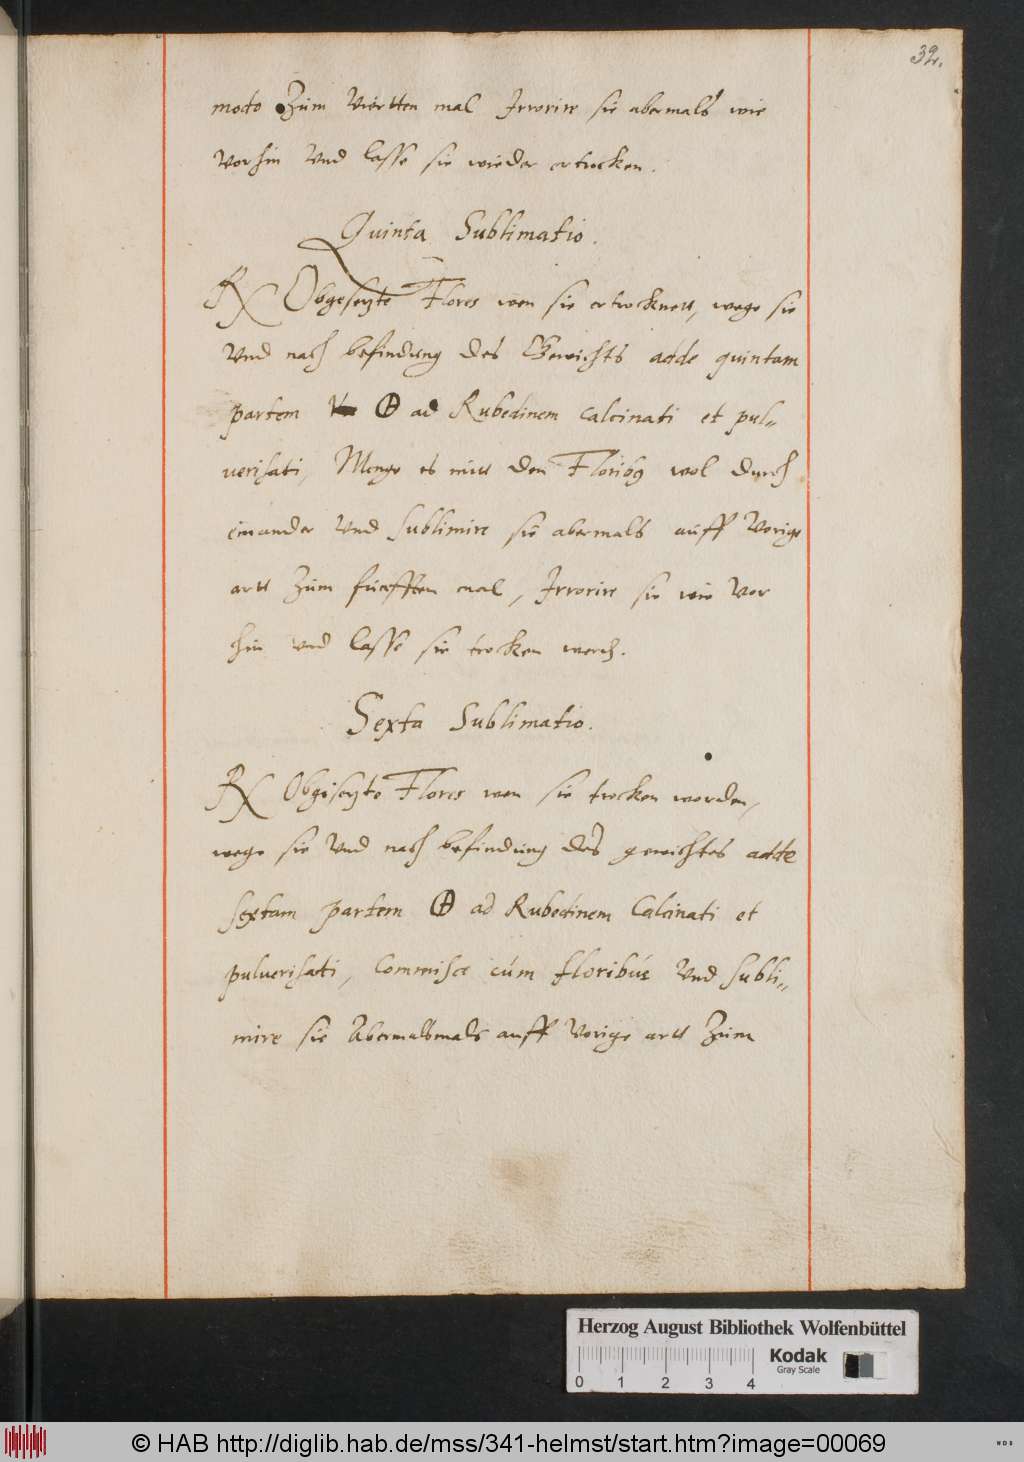 32.
modo Zum Viertten mal Irrorire sie abermals wie
Vorhin Vnd lasse sie wieder ertrocken.
Quinta Sublimatio.
℞ Obgesetzte Flores wen sie ertrocknett, wege sie
Vnd nach befindung des Gewichts adde quintam
partem 🜨 ad Rubedinem calcinati et pul„
verisati, Menge es mitt den Florib9 wol durch
einander Vnd sublimire sie abermals auff Vorige
artt Zum fünfften mal, Irrorire sie wie Vor
hin vnd lasse sie trocken werdn.
Sexta Sublimatio.
℞ Obgesetzte Flores wen sie trocken worden,
wege sie Vnd nach befindung des gewichtes adde
sextam partem 🜨 ad Rubedinem Calcinati et
pulverisati, Commisce cum floribus Vnd subli„
mire sie Abermalsmals auff Vorige artt Zum
Herzog August Bibliothek Wolfenbüttel
Kodak
Gray Scale
0 1 2 3 4
© HAB http://diglib.hab.de/mss/341-helmst/start.htm?image=00069